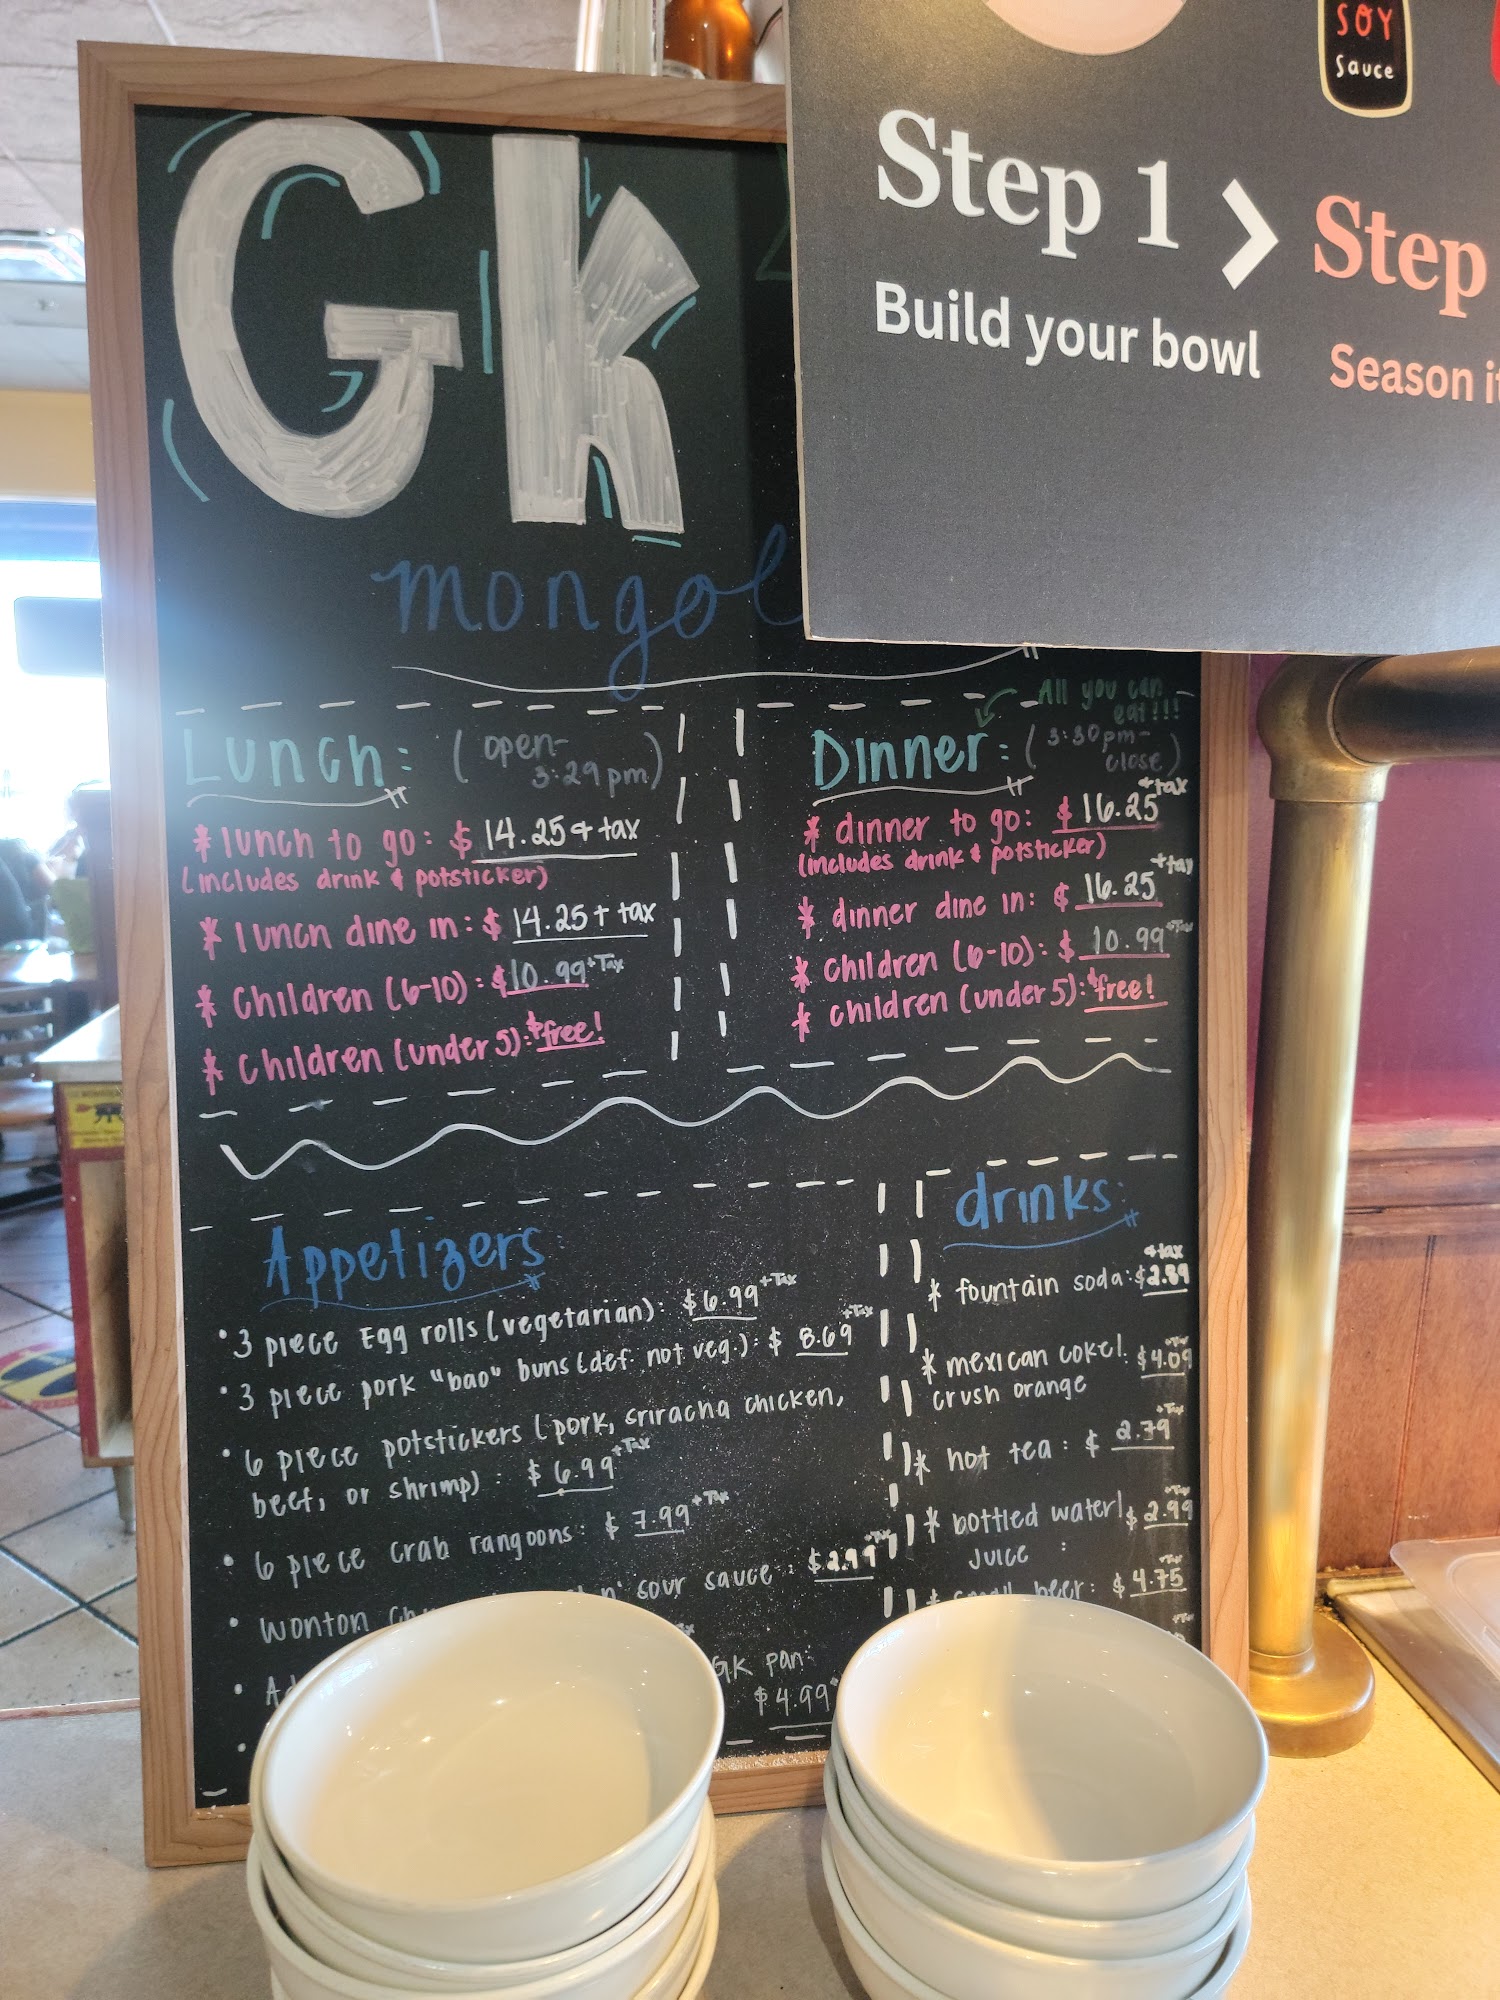 SOY
Sauce
Step 1 > Step
Build your bowl
Season it
Gk
mongol
All you can
eat!!!
Lunch: (open-
3:29pm)
* lunch to go: $ 14.25 + tax
(includes drink & potsticker)
* lunch dine in: $ 14.25 + tax
* children (6-10): $10.99 +Tax
* children (under 5): $free!
Dinner: (3:30pm-
close)
* dinner to go: $ 16.25 +tax
(includes drink & potsticker)
* dinner dine in: $ 16.25 +tax
* children (6-10): $ 10.99 +Tax
* children (under 5): $free!
Appetizers:
• 3 piece Egg rolls (vegetarian): $6.99 +Tax
• 3 piece pork "bao" buns (def. not veg.): $ 8.69 +Tax
• 6 piece potstickers (pork, sriracha chicken,
beef, or shrimp) : $ 6.99 +Tax
• 6 piece crab rangoons: $ 7.99 +Tax
• Wonton n' sour sauce : $2.99 +Tax
GK pan:
$4.99
drinks:
* fountain soda: $2.89 +tax
* mexican coke/: $4.09 +Tax
crush orange
* hot tea : $ 2.79 +Tax
* bottled water/ $ 2.99 +Tax
juice :
* small beer: $ 4.75 +Tax